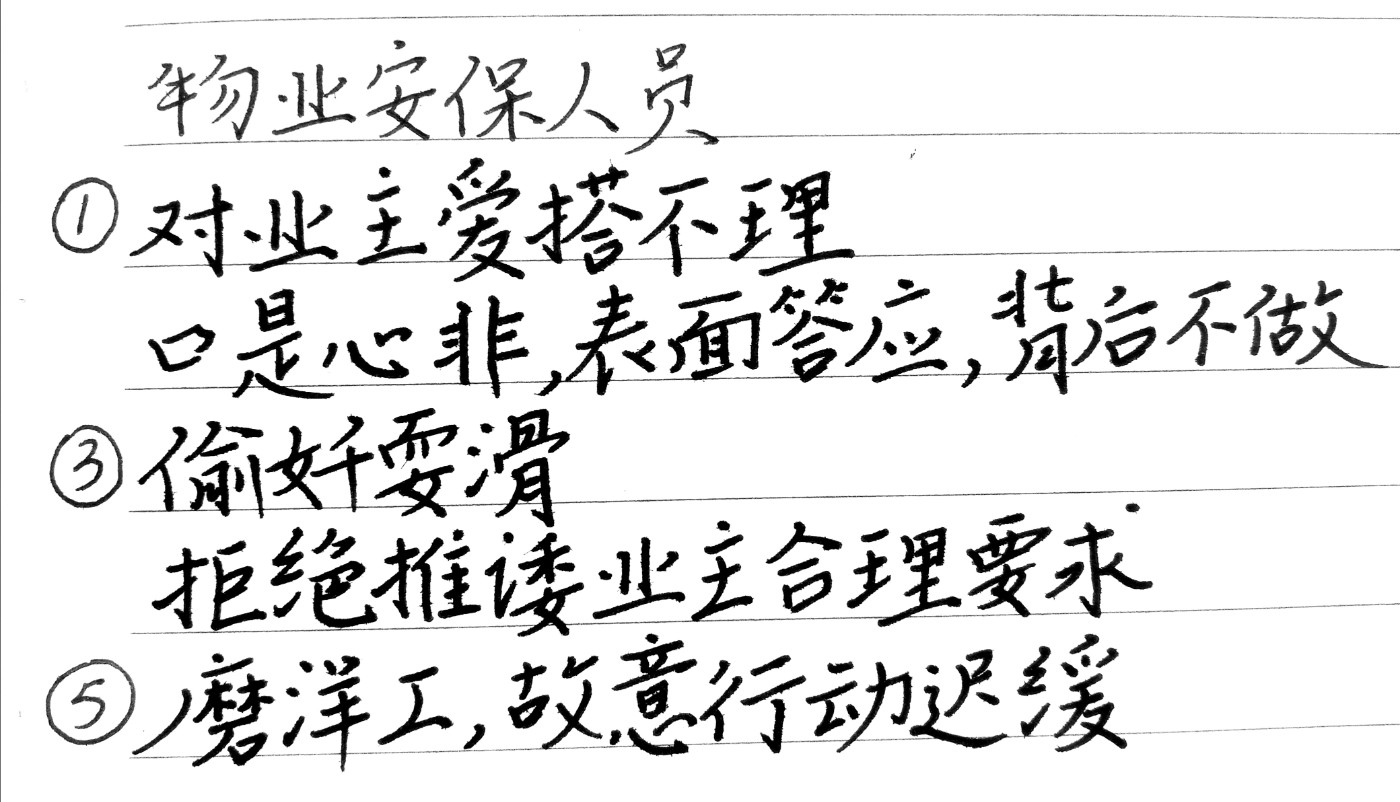 物业安保人员
①对业主爱搭不理
口是心非,表面答应,背后不做
③偷奸耍滑
拒绝推诿业主合理要求
⑤磨洋工,故意行动迟缓